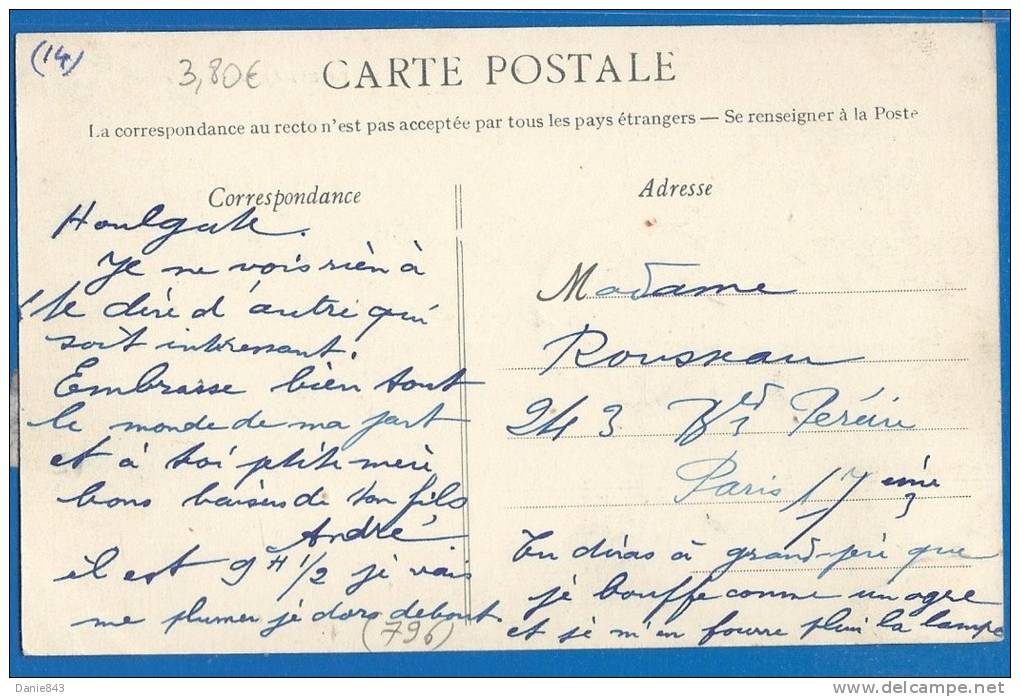 (14)
3,80€
CARTE POSTALE
La correspondance au recto n'est pas acceptée par tous les pays étrangers — Se renseigner à la Poste
Correspondance
Houlgate.
Je ne vois rien à
te dire d'autre qui
soit intéressant.
Embrasse bien tout
le monde de ma part
et à toi ptite mère
bons baisers de ton fils
André
il est 9 H 1/2 je vais
me plumer je dors debout
(796)
Adresse
Madame
Rousseau
243 Bd Péreire
Paris 17 ème
Tu diras à grand-père que
je bouffe comme un ogre
et je m'en fourre plein la lampe
Danie843
delcampe.net